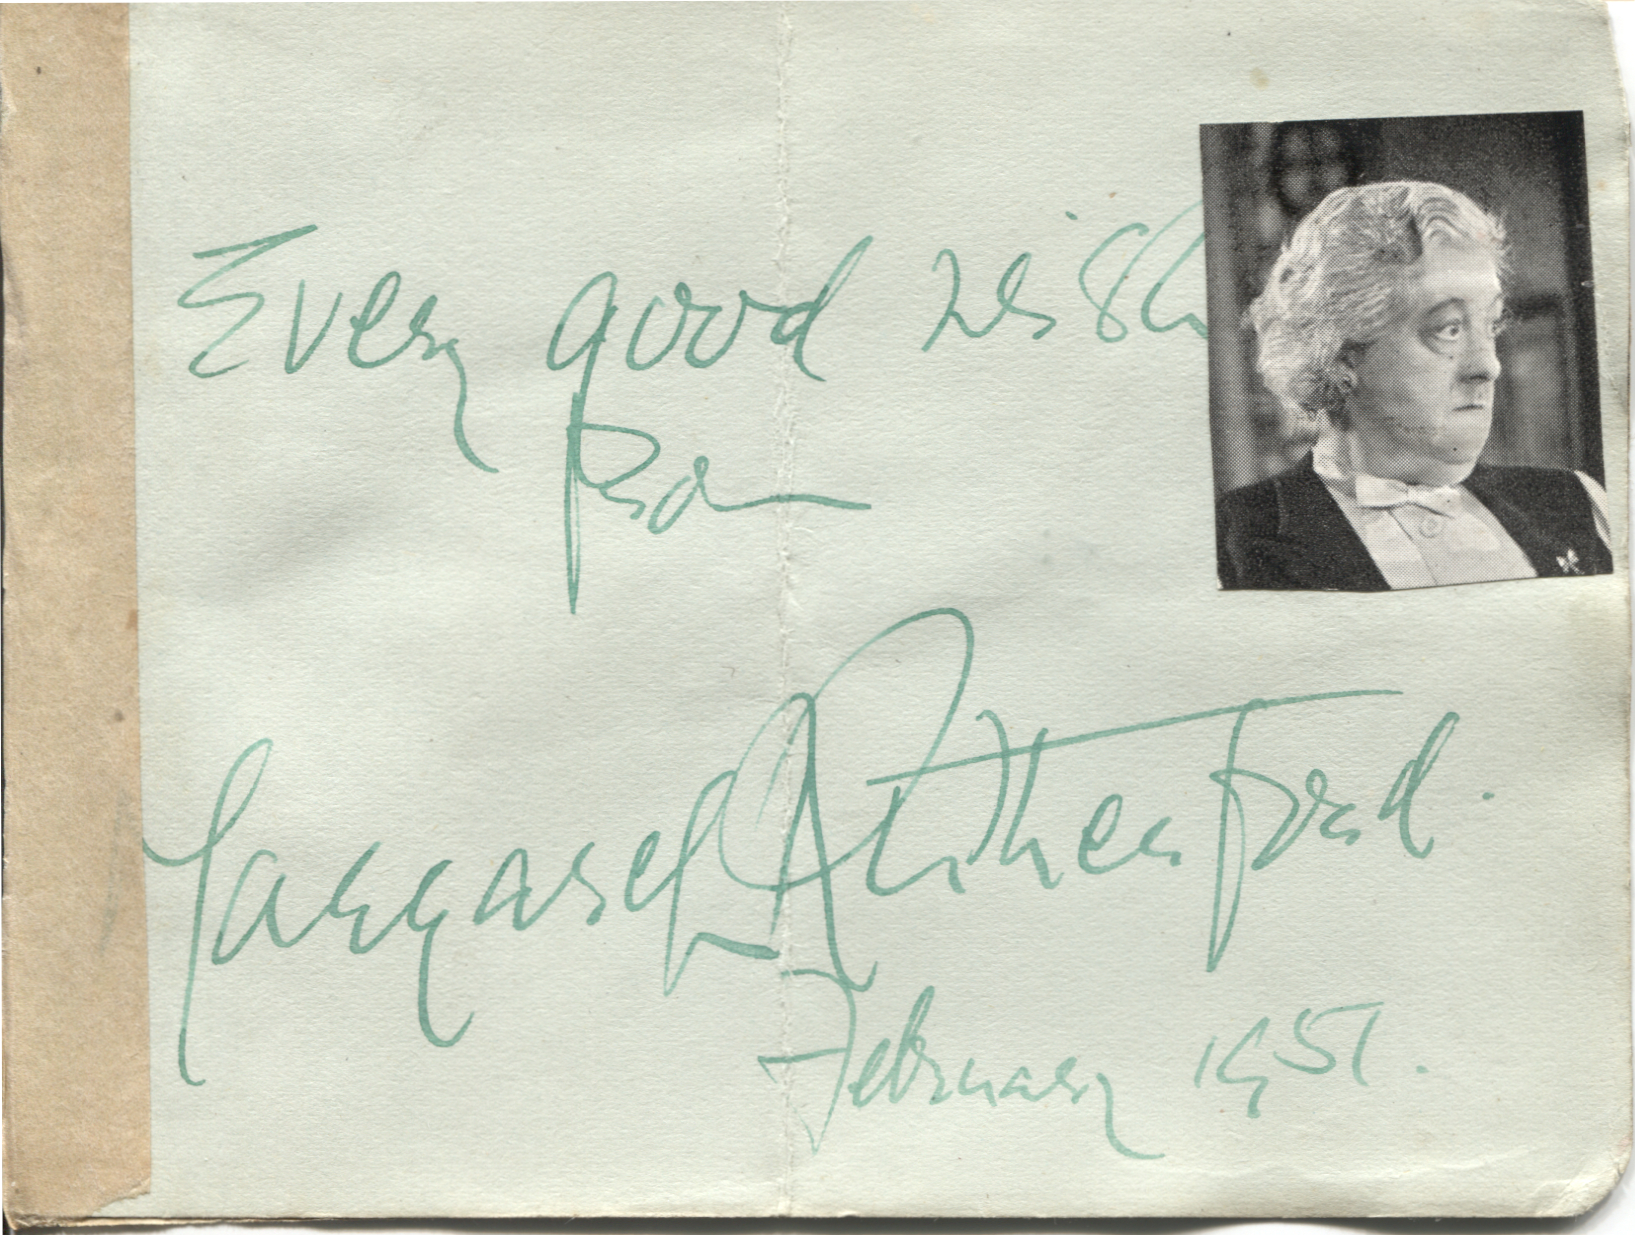 Every good wish
from
Margaret Rutherford.
February 1951.